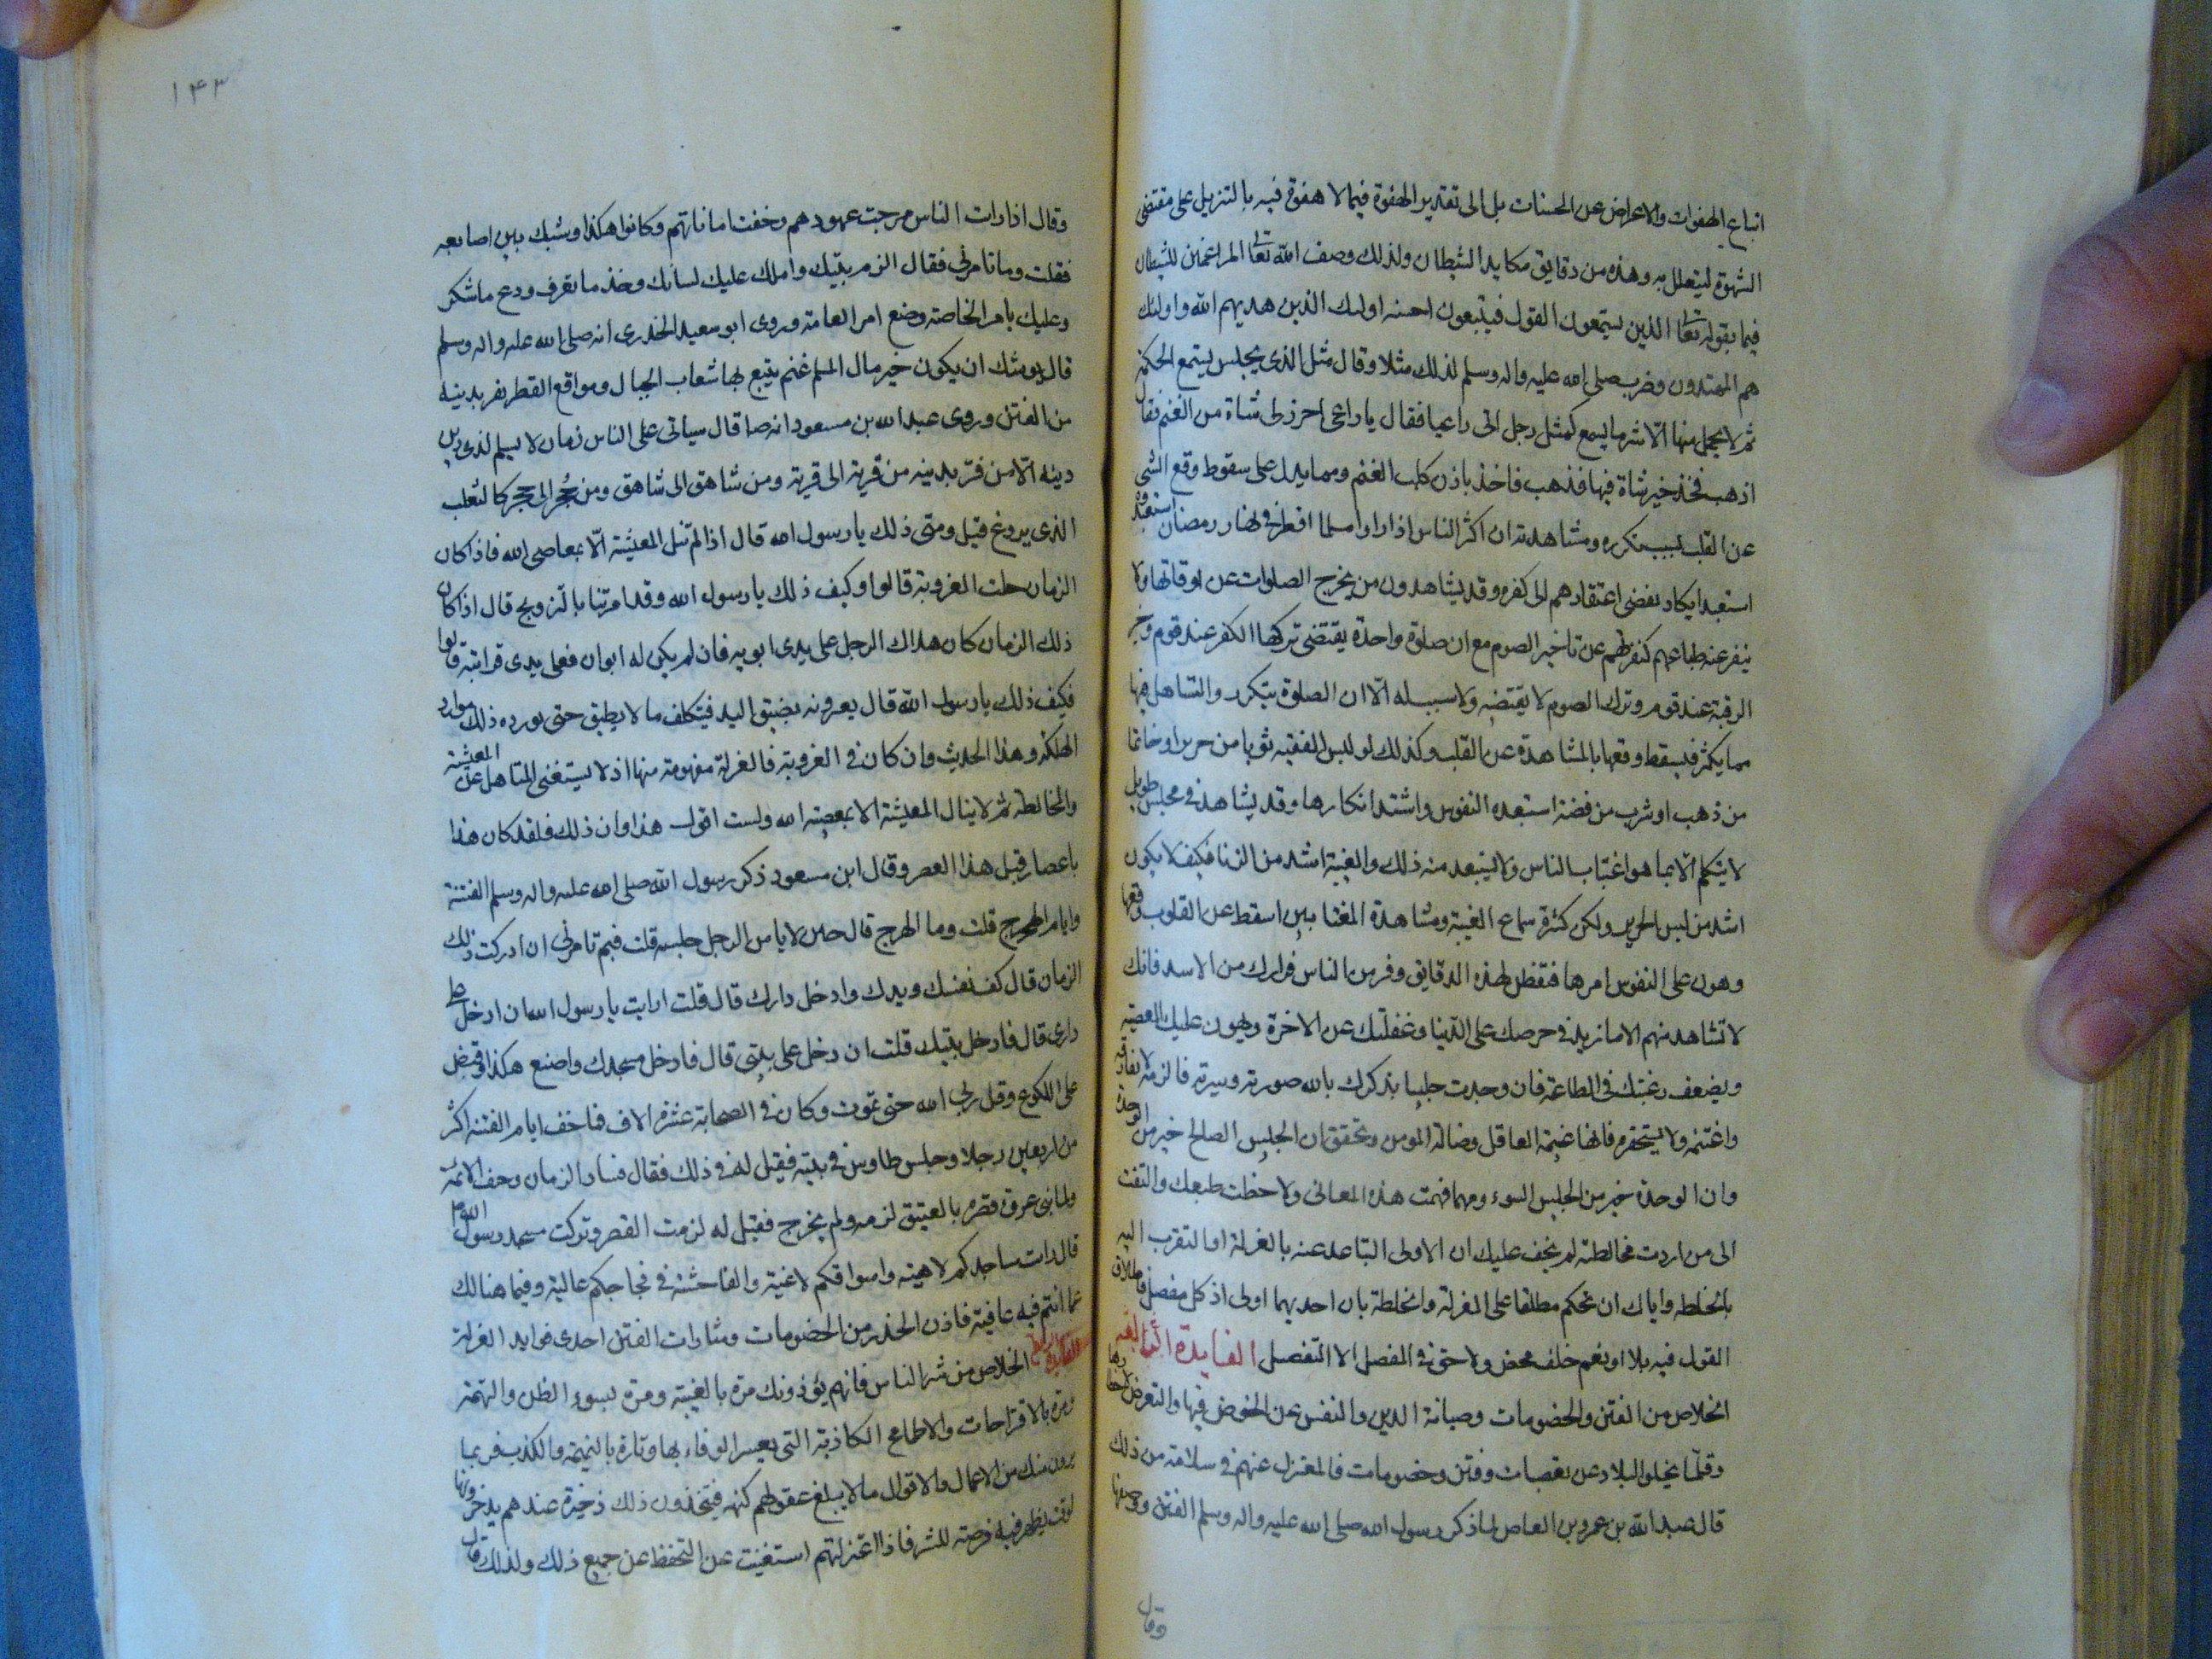 اتباع الهفوات والاعراض عن الحسنات بل الى تقدير الهفوة فيما لا هفوة فيه بالتنزيل على مقتضى
الشهوة ليتعلل به وهذه من دقايق مكايد الشيطان ولذلك وصف الله تعالى المراغمين للشيطان
فيها بقوله تعالى الذين يستمعون القول فيتبعون احسنه اولئك الذين هديهم الله واولئك
هم المهتدون وضرب صلى الله عليه واله وسلم لذلك مثلا وقال مثل الذى يجلس يستمع الحكمة
ثم لا يحمل منها الّا شر ما يسمع كمثل رجل اتى راعيا فقال يا راعى احرز لى شاة من الغنم فقال
اذهب فخذ خير شاة فيها فذهب فاخذ باذن كلب الغنم ومما يدل على سقوط وقع الشى
عن القلب بسبب تكرره ومشاهدته ان اكثر الناس اذا راوا مسلما افطر فى نهار رمضان استبعدوه
استبعدا يكاد يفضى اعتقادهم الى كفره وقد يشاهدون من يخرج الصلوات عن اوقاتها ولا
ينفر عنه طباعهم كنفرتهم عن تاخير الصوم مع ان صلوة واحدة يقتضى تركها الكفر عند قوم وحز
الرقبة عند قوم وترك الصوم لا يقتضيه ولا سبب له الّا ان الصلوة يتكرر والتساهل فيها
مما يكثر فيسقط وقعها بالمشاهدة عن القلب وكذلك لو لبس الفقيه ثوبا من حرير او خاتما
من ذهب او شرب من فضة استبعده النفوس واشتد انكارها وقد يشاهد فى مجلس طويل
لا يتكلم الّا بما هو اغتياب الناس ولا يستبعد منه ذلك والغيبة اشد من الزنا فكيف لا يكون
اشد من لبس الحرير ولكن كثرة سماع الغيبة ومشاهدة المغتابين اسقط عن القلوب وقعها
وهون على النفوس امرها فتفطن لهذه الدقايق وفر من الناس فرارك من الاسد فانك
لا تشاهد منهم الا ما يزيد فى حرصك على الدنيا وغفلتك عن الاخرة ويهون عليك المعصية
ويضعف رغبتك فى الطاعة فان وجدت جليسا يذكرك بالله صورته وسيرته فالزمه لا تفارقه
واغتنمه ولا يستحقره فانها غنيمة العاقل وضالة المومن وتحقق ان الجليس الصالح خير من الوحدة
وان الوحدة خير من الجليس السوء ومهما فهمت هذه المعانى ولاحظت طبعك والتفت
الى من اردت مخالطته لم يخف عليك ان الاولى التباعد عنه بالعزلة او التقرب اليه
بالخلطه واياك ان تحكم مطلقا على العزلة والخلطة بان احديهما اولى اذ كل مفصل فاطلاق
القول فيه بلا او نعم خلف محض ولا حق فى المفصل الا التفصيل الفايدة الثالثه
الخلاص من الفتن والخصومات وصيانة الدين والنفس عن الخوض فيها والتعرض لاخطارها
وقلّما يخلو البلاد عن تعصبات وفتن وخصومات فالمعتزل عنهم فى سلامة من ذلك
قال عبد الله بن عمرو بن العاص لما ذكر رسول الله صلى الله عليه واله وسلم الفتن ووصفها
وقال
١۴٣
وقال اذا رات الناس مرجت عهودهم وخفت اماناتهم وكانوا هكذا وشبك بين اصابعه
فقلت وما تامرنى فقال الزم بيتك واملك عليك لسانك وخذ ما تعرف ودع ما تنكر
وعليك بامر الخاصة وضع امر العامة وروى ابو سعيد الخدرى انه صلى الله عليه واله وسلم
قال يوشك ان يكون خير مال المسلم غنم يتبع بها شعاب الجبال ومواقع القطر يفر بدينه
من الفتن وروى عبد الله بن مسعود انه ص قال سياتى على الناس زمان لا يسلم لذى دين
دينه الّا من فرّ بدينه من قرية الى قرية ومن شاهق الى شاهق ومن جُحر الى جحر كالثعلب
الذى يروغ قيل ومتى ذلك يا رسول الله قال اذا لم تنل المعيشة الّا بمعاصى الله فاذا كان
الزمان حلت العزوبة قالوا وكيف ذلك يا رسول الله وقد امرتنا بالتزويج قال اذا كان
ذلك الزمان كان هلاك الرجل على يدى ابويه فان لم يكن له ابوان فعلى يدى قرابته قالوا
فكيف ذلك يا رسول الله قال يعيرونه بضيق اليد فيتكلف ما لا يطيق حتى يورده ذلك موارد
الهلكة وهذا الحديث وان كان فى العزوبة فالعزلة مفهومة منها اذ لا يستغنى المتاهل عن المعيشة
والمخالطة ثم لا ينال المعيشة الا بمعصية الله ولست اقول هذا وان ذلك فلقد كان هذا
باعصار قبل هذا العصر وقال ابن مسعود ذكر رسول الله صلى الله عليه واله وسلم الفتنة
وايام الهرج قلت وما الهرج قال حين لا يامن الرجل جليسه قلت فبم تامرنى ان ادركت ذلك
الزمان قال كف نفسك ويدك وادخل دارك قال قلت ارايت يا رسول الله ان ادخل على
دارى قال فادخل بيتك قلت ان دخل على بيتى قال فادخل مسجدك واصنع هكذا وقبض
على الكوع وقل ربى الله حتى تموت وكان فى الصحابة عشرة الاف فما خف ايام الفتنه اكثر
من اربعين رجلا وجلس طاوس فى بيته فقيل له فى ذلك فقال فساد الزمان وحيف الائمه
ولما بنى عروة قصره بالعقيق لزمه ولم يخرج فقيل له لزمت القصر وتركت مسجد رسول الله ص
قال رات مساجدكم لاهية واسواقكم لاغية والفاحشة فى فجاجكم عالية وفيما هنالك
عما انتم فيه عافية فاذن الحذر من الخصومات ومثارات الفتن احدى فوايد العزلة
الفايدة الرابعة الخلاص من شر الناس فانهم يؤذونك مرة بالغيبة ومرة بسوء الظن والتهمة
ومرة بالاقتراحات والاطماع الكاذبة التى يعسر الوفاء بها وتارة بالنميمة والكذب فربما
يرون منك من الاعمال والاقوال ما لا يبلغ عقولهم كنهه فيتخذون ذلك ذخيرة عندهم يدخرونها
لوقت يظهر فيه فرصة للشر فاذا اعتزلتهم استغنيت عن التحفظ عن جميع ذلك ولذلك قال